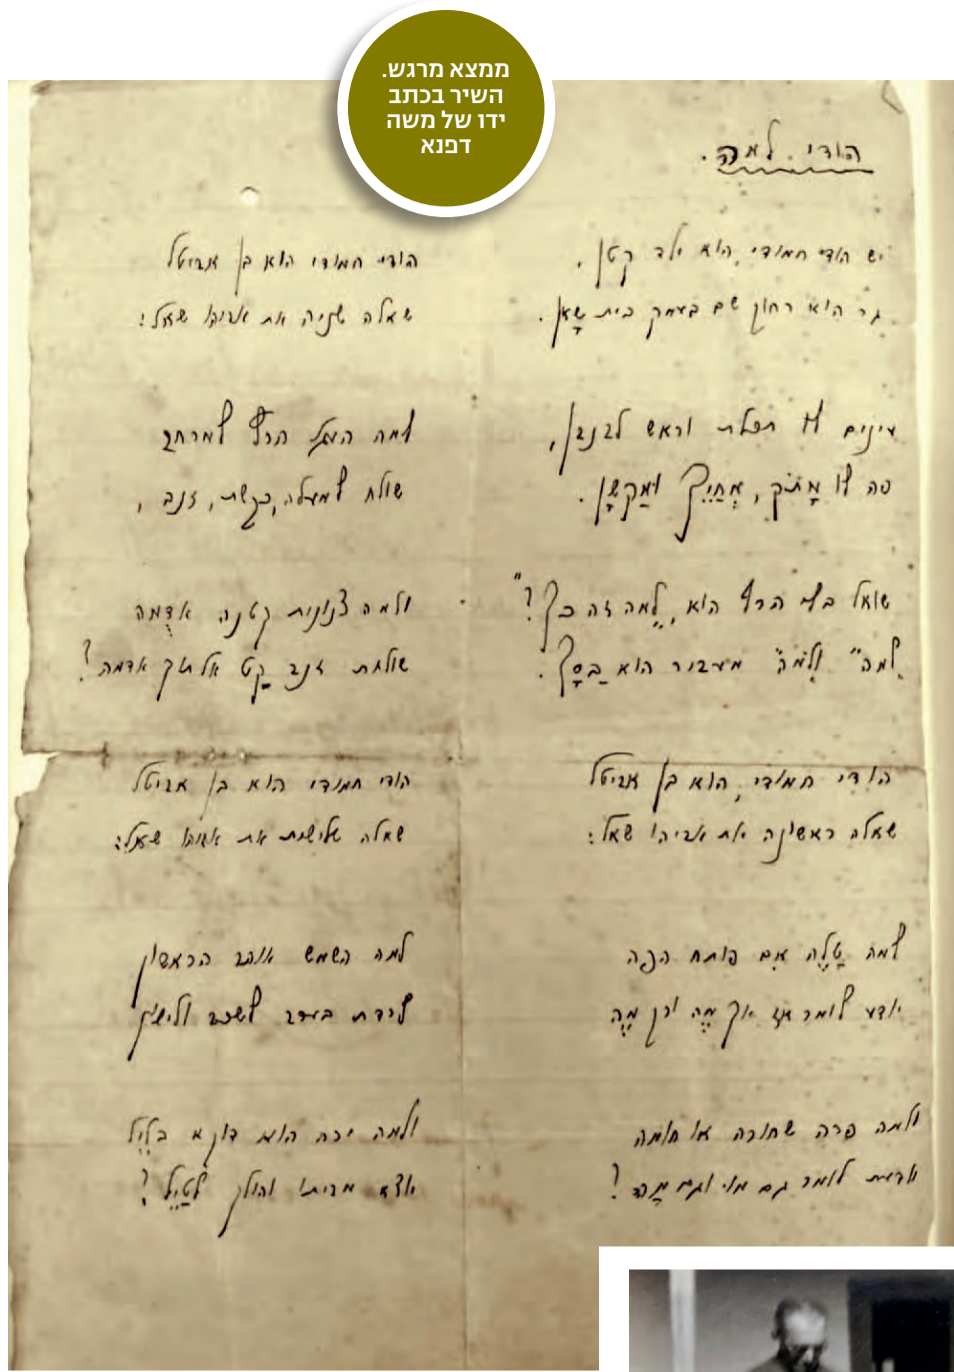 ממצא מרגש.
השיר בכתב
ידו של משה
דפנא
הודי למה.
יש הודי חמודי, הוא ילד קטן,
גר הוא רחוק שם בעמק בית שְׁאָן.
עינים לו תכלת וראש לבנבן,
פה לו מָתֹק, מְחַיֵּךְ וּמַקְשָׁן.
שואל בלי הרף הוא, "לָמה זה כך?"
"לָמה" ולָמה" מעביר הוא בַּסָּךְ.
הודי חמודי, הוא בן אביטל
שאלה ראשונה את אביהו שאל:
למה טָלֶה אִם פותח הפה
יודע לומר אז אך מֶה ורק מֶה
ולמה פרה שחורה או חומה
אומרת לומר גם מוּ וגם מָה?
הודי חמודי הוא בן אביטל
שאלה שניה את אביהו שאל:
למה העגל הרץ למרחב
שולח למעלה, כקשת, זנב,
ולמה צנונית קטנה אדֻמה
שולחת זנב קָט אל תוך אדמה?
הודי חמודי הוא בן אביטל
שאלה שלישית את אביהו שאל:
למה השמש אוהב הראשון
לרדת בערב לשכב ולישון
ולמה ירח הוא דוקא בלֵּיל
יוצא מביתו והולך לְטַיֵּל?